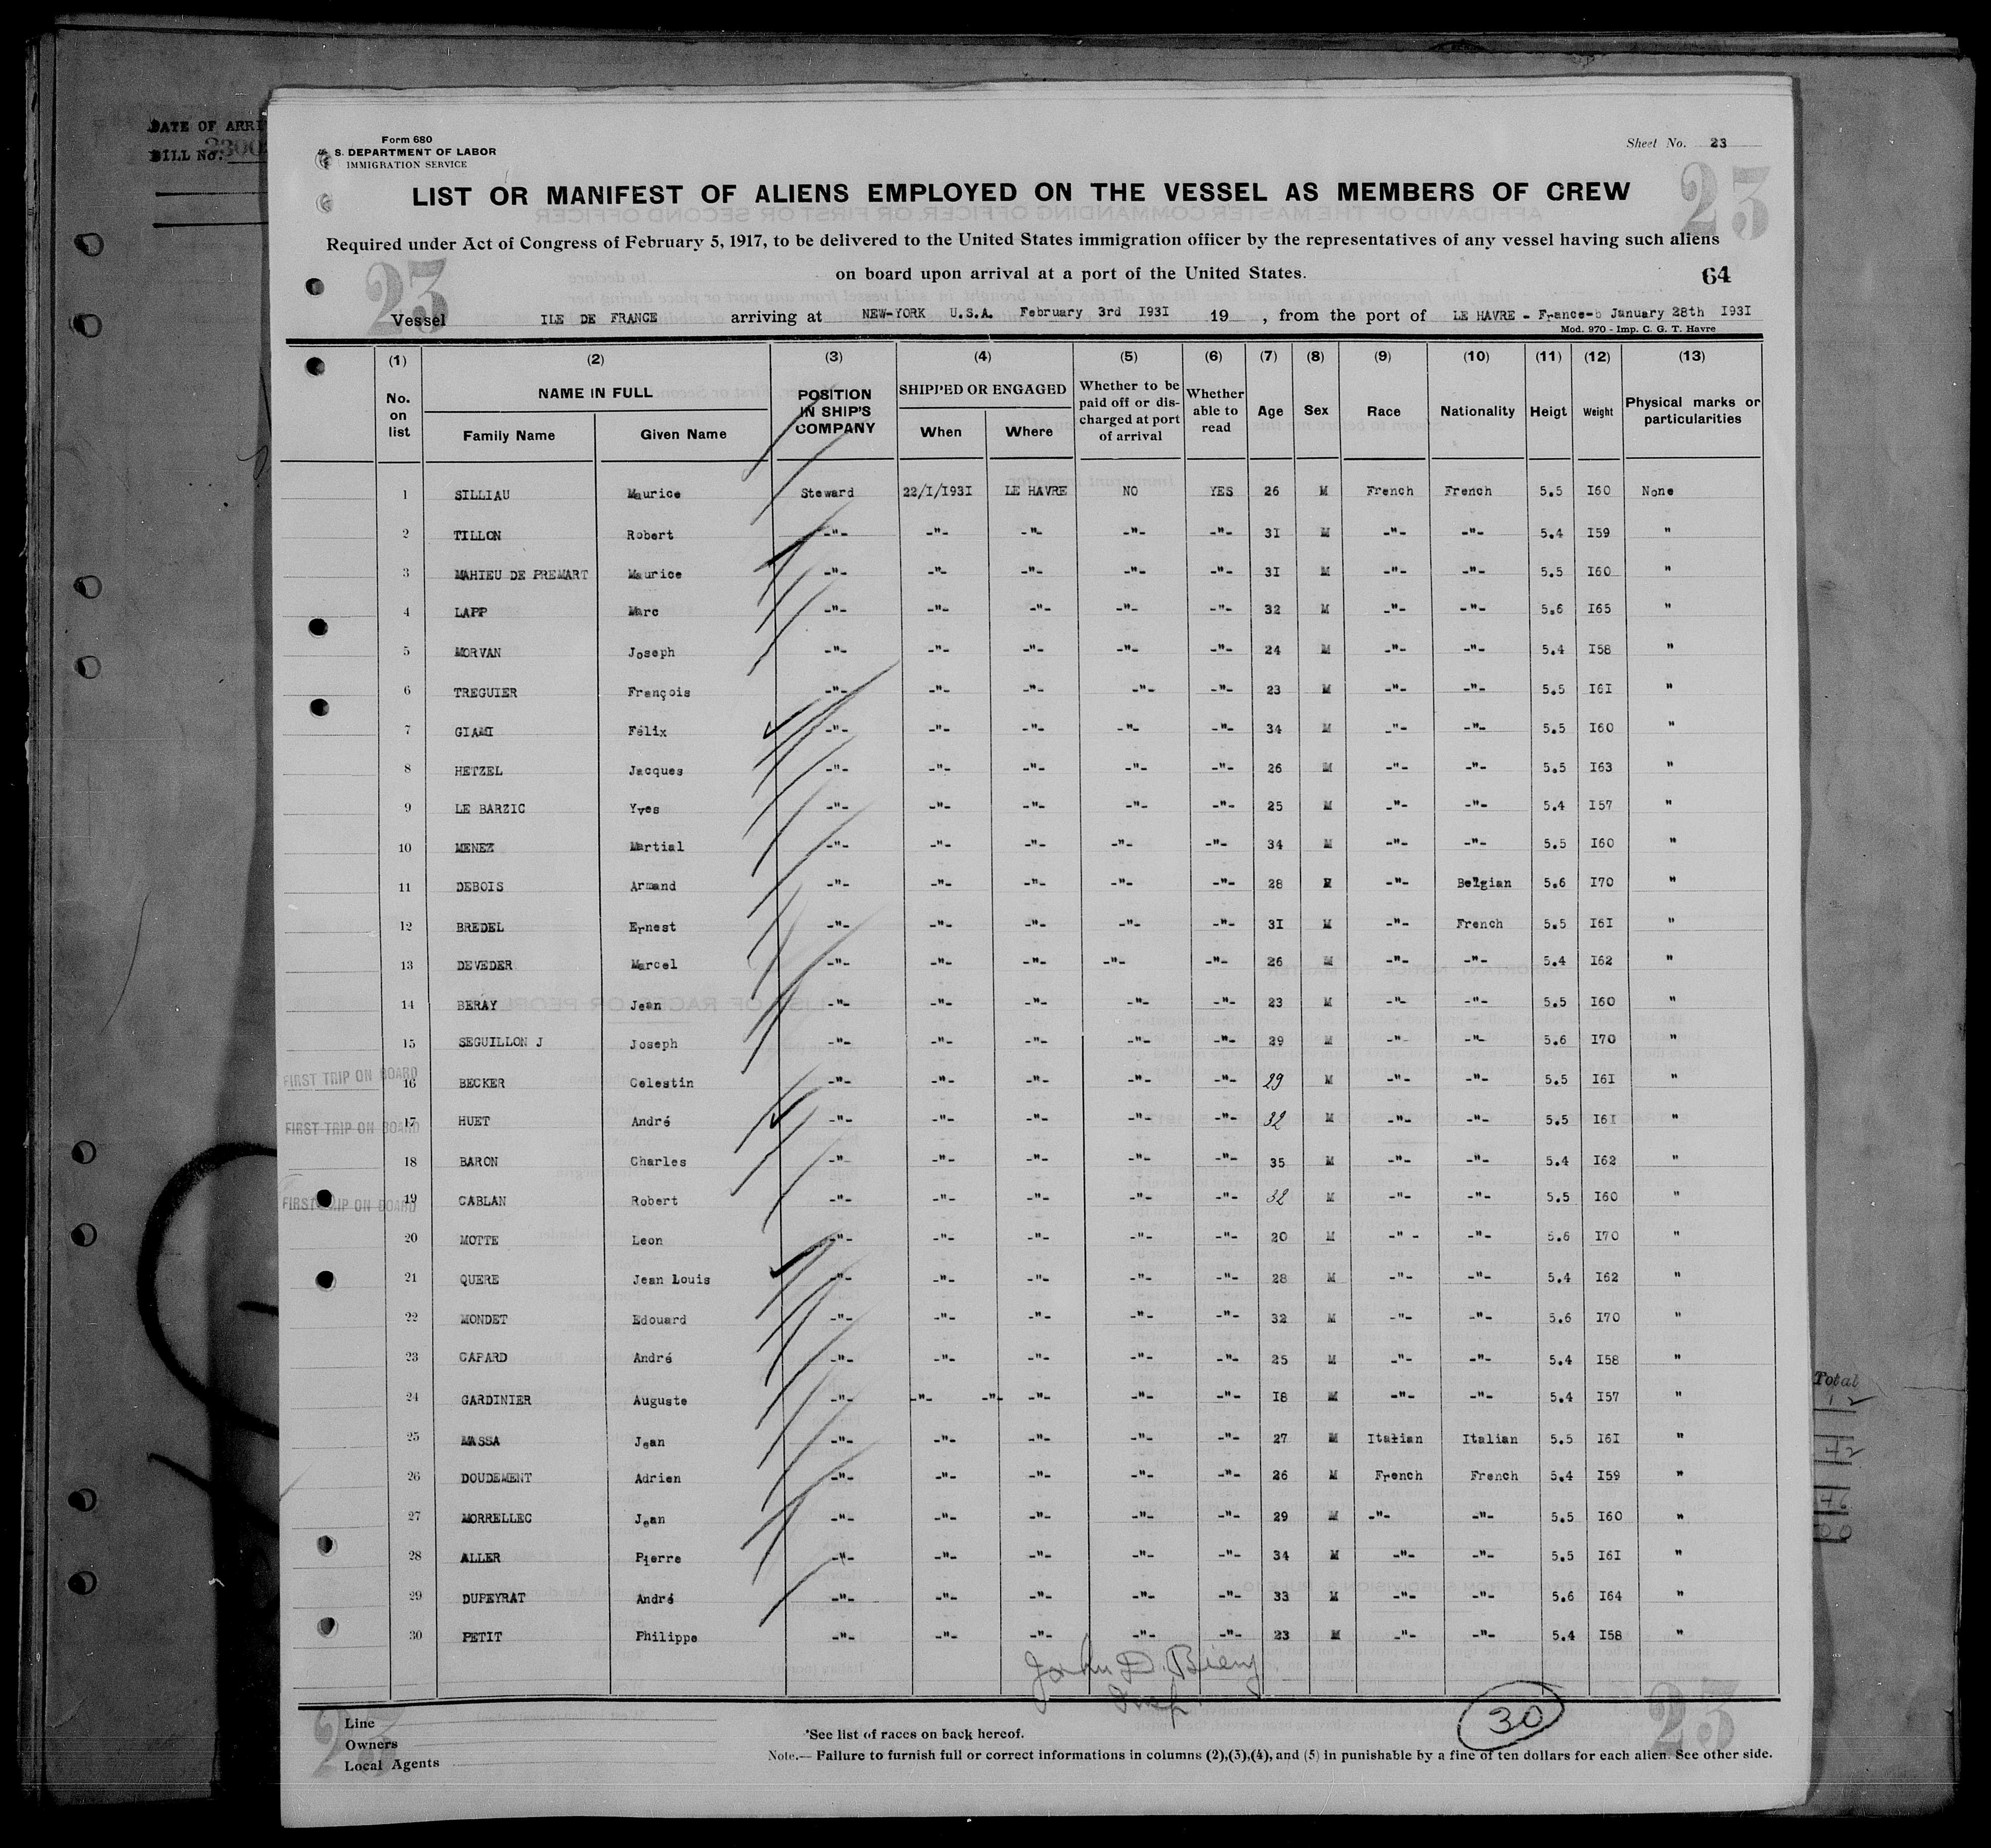 DATE OF ARRI
BILL No. 2300
Form 680
U. S. DEPARTMENT OF LABOR
IMMIGRATION SERVICE
Sheet No. 23
23
LIST OR MANIFEST OF ALIENS EMPLOYED ON THE VESSEL AS MEMBERS OF CREW
Required under Act of Congress of February 5, 1917, to be delivered to the United States immigration officer by the representatives of any vessel having such aliens
on board upon arrival at a port of the United States.
64
23
Vessel ILE DE FRANCE arriving at NEW-YORK U.S.A. February 3rd I93I 19 , from the port of LE HAVRE - France-b January 28th I93I
Mod. 970 - Imp. C. G. T. Havre
(1) (2) (3) (4) (5) (6) (7) (8) (9) (10) (11) (12) (13)
No. on list NAME IN FULL Family Name Given Name POSITION IN SHIP'S COMPANY SHIPPED OR ENGAGED When Where Whether to be paid off or dis-charged at port of arrival Whether able to read Age Sex Race Nationality Heigt Weight Physical marks or particularities
1 SILLIAU Maurice Steward 22/I/I93I LE HAVRE NO YES 26 M French French 5.5 I60 None
2 TILLON Robert -"- -"- -"- -"- -"- 3I M -"- -"- 5.4 I59 "
3 MAHIEU DE PREMART Maurice -"- -"- -"- -"- -"- 3I M -"- -"- 5.5 I60 "
4 LAPP Marc -"- -"- -"- -"- -"- 32 M -"- -"- 5.6 I65 "
5 MORVAN Joseph -"- -"- -"- -"- -"- 24 M -"- -"- 5.4 I58 "
6 TREGUIER François -"- -"- -"- -"- -"- 23 M -"- -"- 5.5 I6I "
7 GIAMI Félix -"- -"- -"- -"- -"- 34 M -"- -"- 5.5 I60 "
8 HETZEL Jacques -"- -"- -"- -"- -"- 26 M -"- -"- 5.5 I63 "
9 LE BARZIC Yves -"- -"- -"- -"- -"- 25 M -"- -"- 5.4 I57 "
10 MENEZ Martial -"- -"- -"- -"- -"- 34 M -"- -"- 5.5 I60 "
11 DEBOIS Armand -"- -"- -"- -"- -"- 28 M -"- Belgian 5.6 I70 "
12 BREDEL Ernest -"- -"- -"- -"- -"- 3I M -"- French 5.5 I6I "
13 DEVEDER Marcel -"- -"- -"- -"- -"- 26 M -"- -"- 5.4 I62 "
14 BERAY Jean -"- -"- -"- -"- -"- 23 M -"- -"- 5.5 I60 "
15 SEGUILLON J Joseph -"- -"- -"- -"- -"- 29 M -"- -"- 5.6 I70 "
FIRST TRIP ON BOARD 16 BECKER Celestin -"- -"- -"- -"- -"- 29 M -"- -"- 5.5 I6I "
FIRST TRIP ON BOARD 17 HUET André -"- -"- -"- -"- -"- 32 M -"- -"- 5.5 I6I "
18 BARON Charles -"- -"- -"- -"- -"- 35 M -"- -"- 5.4 I62 "
FIRST TRIP ON BOARD 19 CABLAN Robert -"- -"- -"- -"- -"- 32 M -"- -"- 5.5 I60 "
20 MOTTE Leon -"- -"- -"- -"- -"- 20 M -"- -"- 5.6 I70 "
21 QUERE Jean Louis -"- -"- -"- -"- -"- 28 M -"- -"- 5.4 I62 "
22 MONDET Edouard -"- -"- -"- -"- -"- 32 M -"- -"- 5.6 I70 "
23 CAPARD André -"- -"- -"- -"- -"- 25 M -"- -"- 5.4 I58 "
24 GARDINIER Auguste -"- -"- -"- -"- -"- -"- I8 M -"- -"- 5.4 I57 "
25 MASSA Jean -"- -"- -"- -"- -"- 27 M Italian Italian 5.5 I6I "
26 DOUDEMENT Adrien -"- -"- -"- -"- -"- 26 M French French 5.4 I59 "
27 MORRELLEC Jean -"- -"- -"- -"- -"- 29 M -"- -"- 5.5 I60 "
28 ALLER Pierre -"- -"- -"- -"- -"- 34 M -"- -"- 5.5 I6I "
29 DUPEYRAT André -"- -"- -"- -"- -"- 33 M -"- -"- 5.6 I64 "
30 PETIT Philippe -"- -"- -"- -"- -"- 23 M -"- -"- 5.4 I58 "
John D. Bieny
Insp
30
23
23
Line
Owners
Local Agents
*See list of races on back hereof.
Note.— Failure to furnish full or correct informations in columns (2),(3),(4), and (5) in punishable by a fine of ten dollars for each alien. See other side.
Total